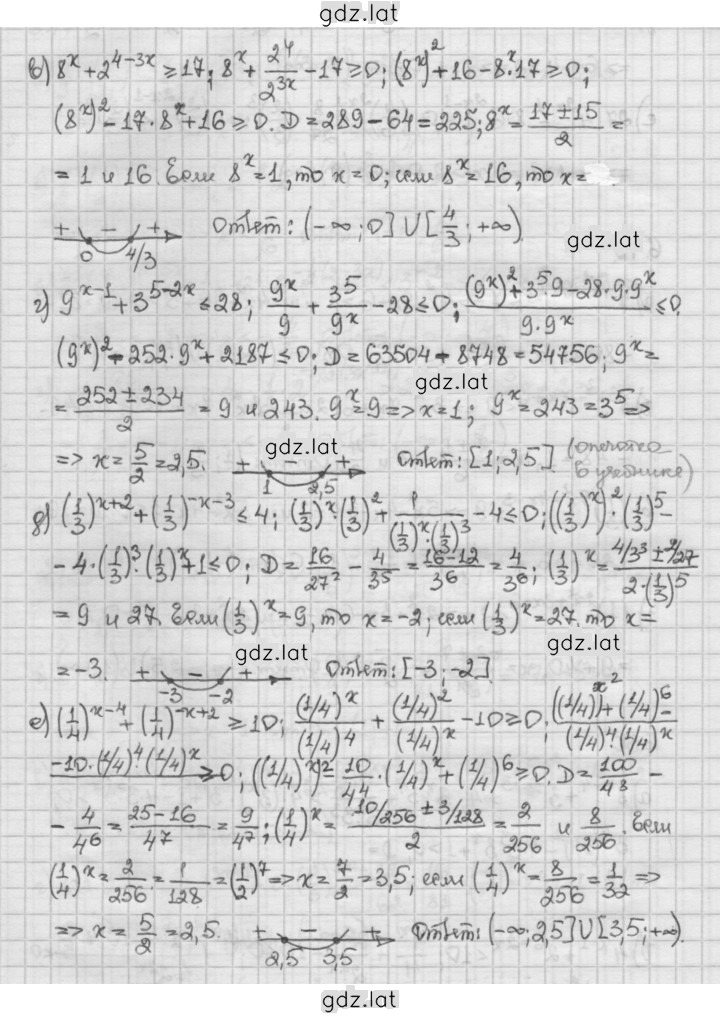 gdz.lat
в) 8^x + 2^{4-3x} ≥ 17; 8^x + 2^4/2^{3x} - 17 ≥ 0; (8^x)^2 + 16 - 8^x·17 ≥ 0;
(8^x)^2 - 17·8^x + 16 ≥ 0. D = 289 - 64 = 225; 8^x = (17 ± 15)/2 =
= 1 и 16. Если 8^x = 1, то x = 0; если 8^x = 16, то x =
+ - + 0 4/3 Ответ: (-∞; 0] ∪ [4/3; +∞).
gdz.lat
г) 9^{x-1} + 3^{5-2x} ≤ 28; 9^x/9 + 3^5/9^x - 28 ≤ 0; ((9^x)^2 + 3^5·9 - 28·9·9^x)/(9·9^x) ≤ 0.
(9^x)^2 - 252·9^x + 2187 ≤ 0; D = 63504 - 8748 = 54756; 9^x =
gdz.lat
= (252 ± 234)/2 = 9 и 243. 9^x = 9 => x = 1; 9^x = 243 = 3^5 =>
gdz.lat
=> x = 5/2 = 2,5. + - + 1 2,5 Ответ: [1; 2,5] (опечатка в учебнике)
д) (1/3)^{x+2} + (1/3)^{-x-3} ≤ 4; (1/3)^x·(1/3)^2 + 1/((1/3)^x·(1/3)^3) - 4 ≤ 0; ((1/3)^x)^2·(1/3)^5 -
- 4·(1/3)^3·(1/3)^x + 1 ≤ 0; D = 16/27^2 - 4/3^5 = (16-12)/3^6 = 4/3^6; (1/3)^x = (4/3^3 ± 2/27)/(2·(1/3)^5)
= 9 и 27. Если (1/3)^x = 9, то x = -2; если (1/3)^x = 27, то x =
gdz.lat
gdz.lat
= -3. + - + -3 -2 Ответ: [-3; -2].
е) (1/4)^{x-4} + (1/4)^{-x+2} ≥ 10; (1/4)^x/(1/4)^4 + (1/4)^2/(1/4)^x - 10 ≥ 0; ((1/4)^x)^2 + (1/4)^6 - / (1/4)^4·(1/4)^x
- 10·(1/4)^4·(1/4)^x ≥ 0; ((1/4)^x)^2 = 10/4^4·(1/4)^x + (1/4)^6 ≥ 0. D = 100/4^3 -
gdz.lat
- 4/4^6 = (25-16)/4^7 = 9/4^7; (1/4)^x = (10/256 ± 3/128)/2 = 2/256 и 8/256. Если
(1/4)^x = 2/256 = 1/128 = (1/2)^7 => x = 7/2 = 3,5; если (1/4)^x = 8/256 = 1/32 =>
=> x = 5/2 = 2,5. + - + 2,5 3,5 Ответ: (-∞; 2,5] ∪ [3,5; +∞).
gdz.lat